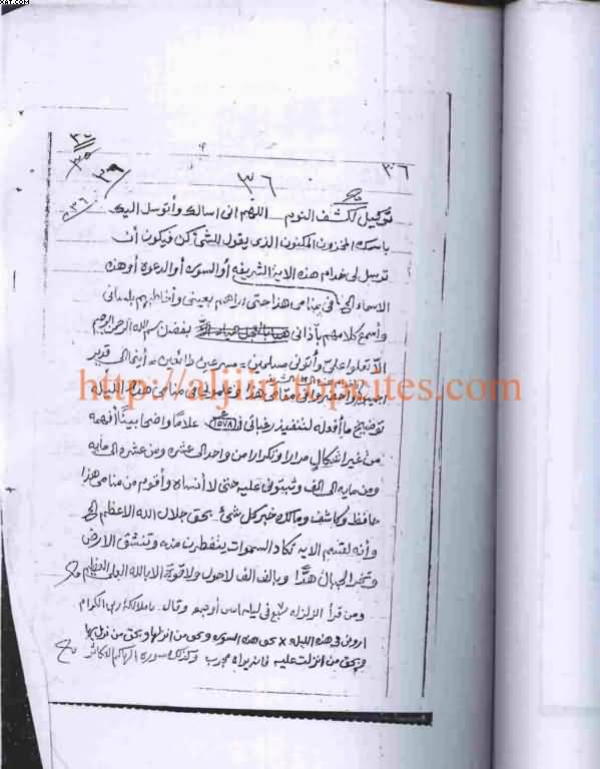 ٣٦
٣٦
٣٩
٣٥
توكيل لكشف النوم اللهم انى اسالك وأتوسل اليك
باسمك المخزون المكنون الذى يقول للشئ كن فيكون أن
ترسل لى خدام هذه الاية الشريفه أو السوره أو الدعوة أو هذه
الاسماء الخ فى منامى هذا حتى اراهم بعينى وأخاطبهم بلسانى
وأسمع كلامهم بآذانى بفضل بسم الله الرحمن الرحيم
الا تعلوا على وأتونى مسلمين مسرعين طائعين أينما الى قدير
http://aljiin.topcites.com
توضيح ما أفعله لتنفيذ رغباتى فى علاما واضحا بينا أفهمه
من غير اشكال مرارا وتكرارا من واحد الى عشره ومن عشره الى مايه
ومن مايه الى الف وثبتونى عليه حتى لا أنساه وأقوم من منامى هذا
حافظ وكاشف ومالك خبر كل شئ بحق جلال الله الاعظم الخ
وأنه لقسم الايه تكاد السموات يتفطرن منه وتنشق الارض
وتخر الجبال هدّا وبالف الف لاحول ولاقوة الابالله العلى العظيم
ومن قرأ الزلزله فى ليله وقال ياملائكة ربى الكرام
ارونى فى هذه الليله × بحق هذه السوره وبحق من انزلها وبحق من نزل بها
وبحق من انزلت عليه فانه يراه مجرب وكذلك سورة الهاكم التكاثر